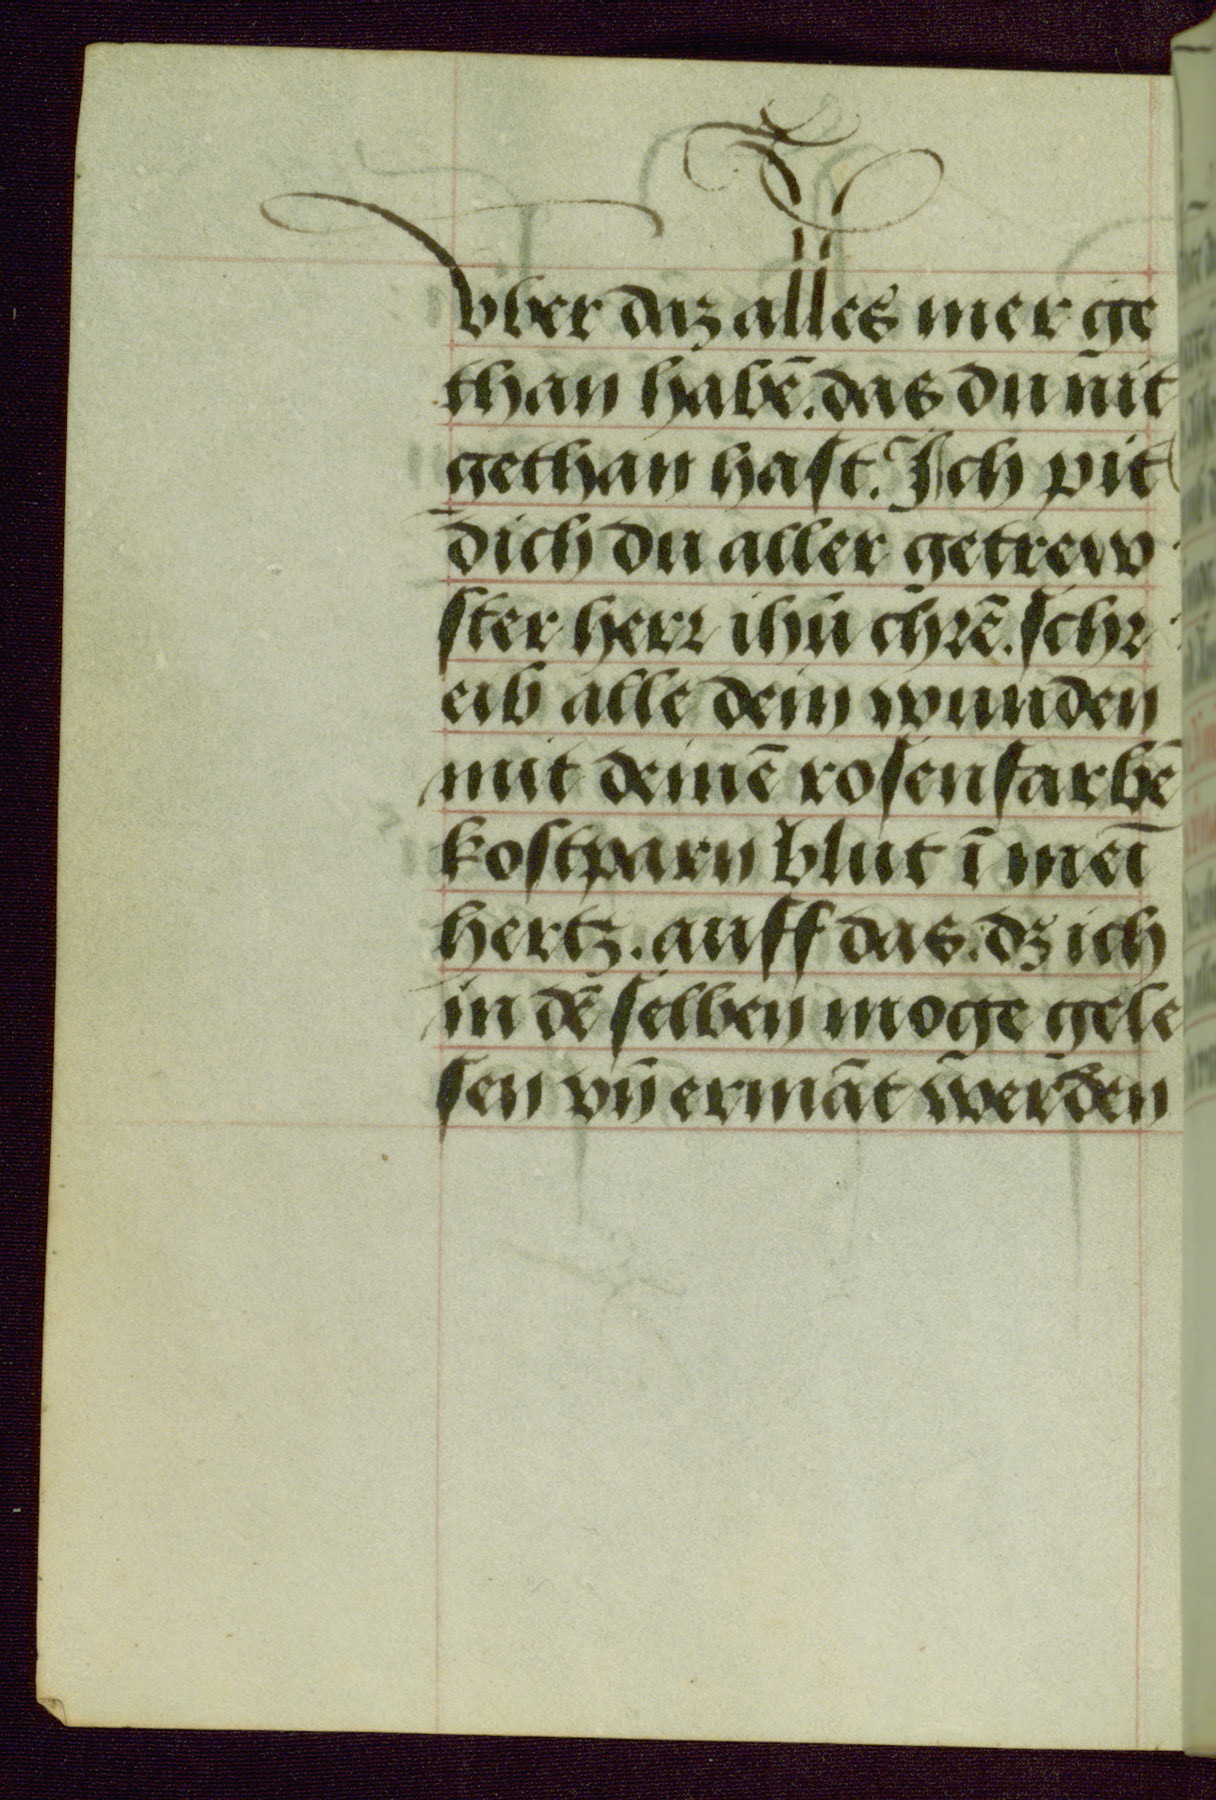 vber daz alles mer ge
than habē. das du nit
gethan hast. Ich pit
dich du aller getrew
ster herr ihū chrē. schr
eib alle dein wunden
mit deinē rosenfarbē
kostparn blut ī meī
hertz. auff das. dz ich
in dē selben moge gele
sen vn̄ ermāt werden